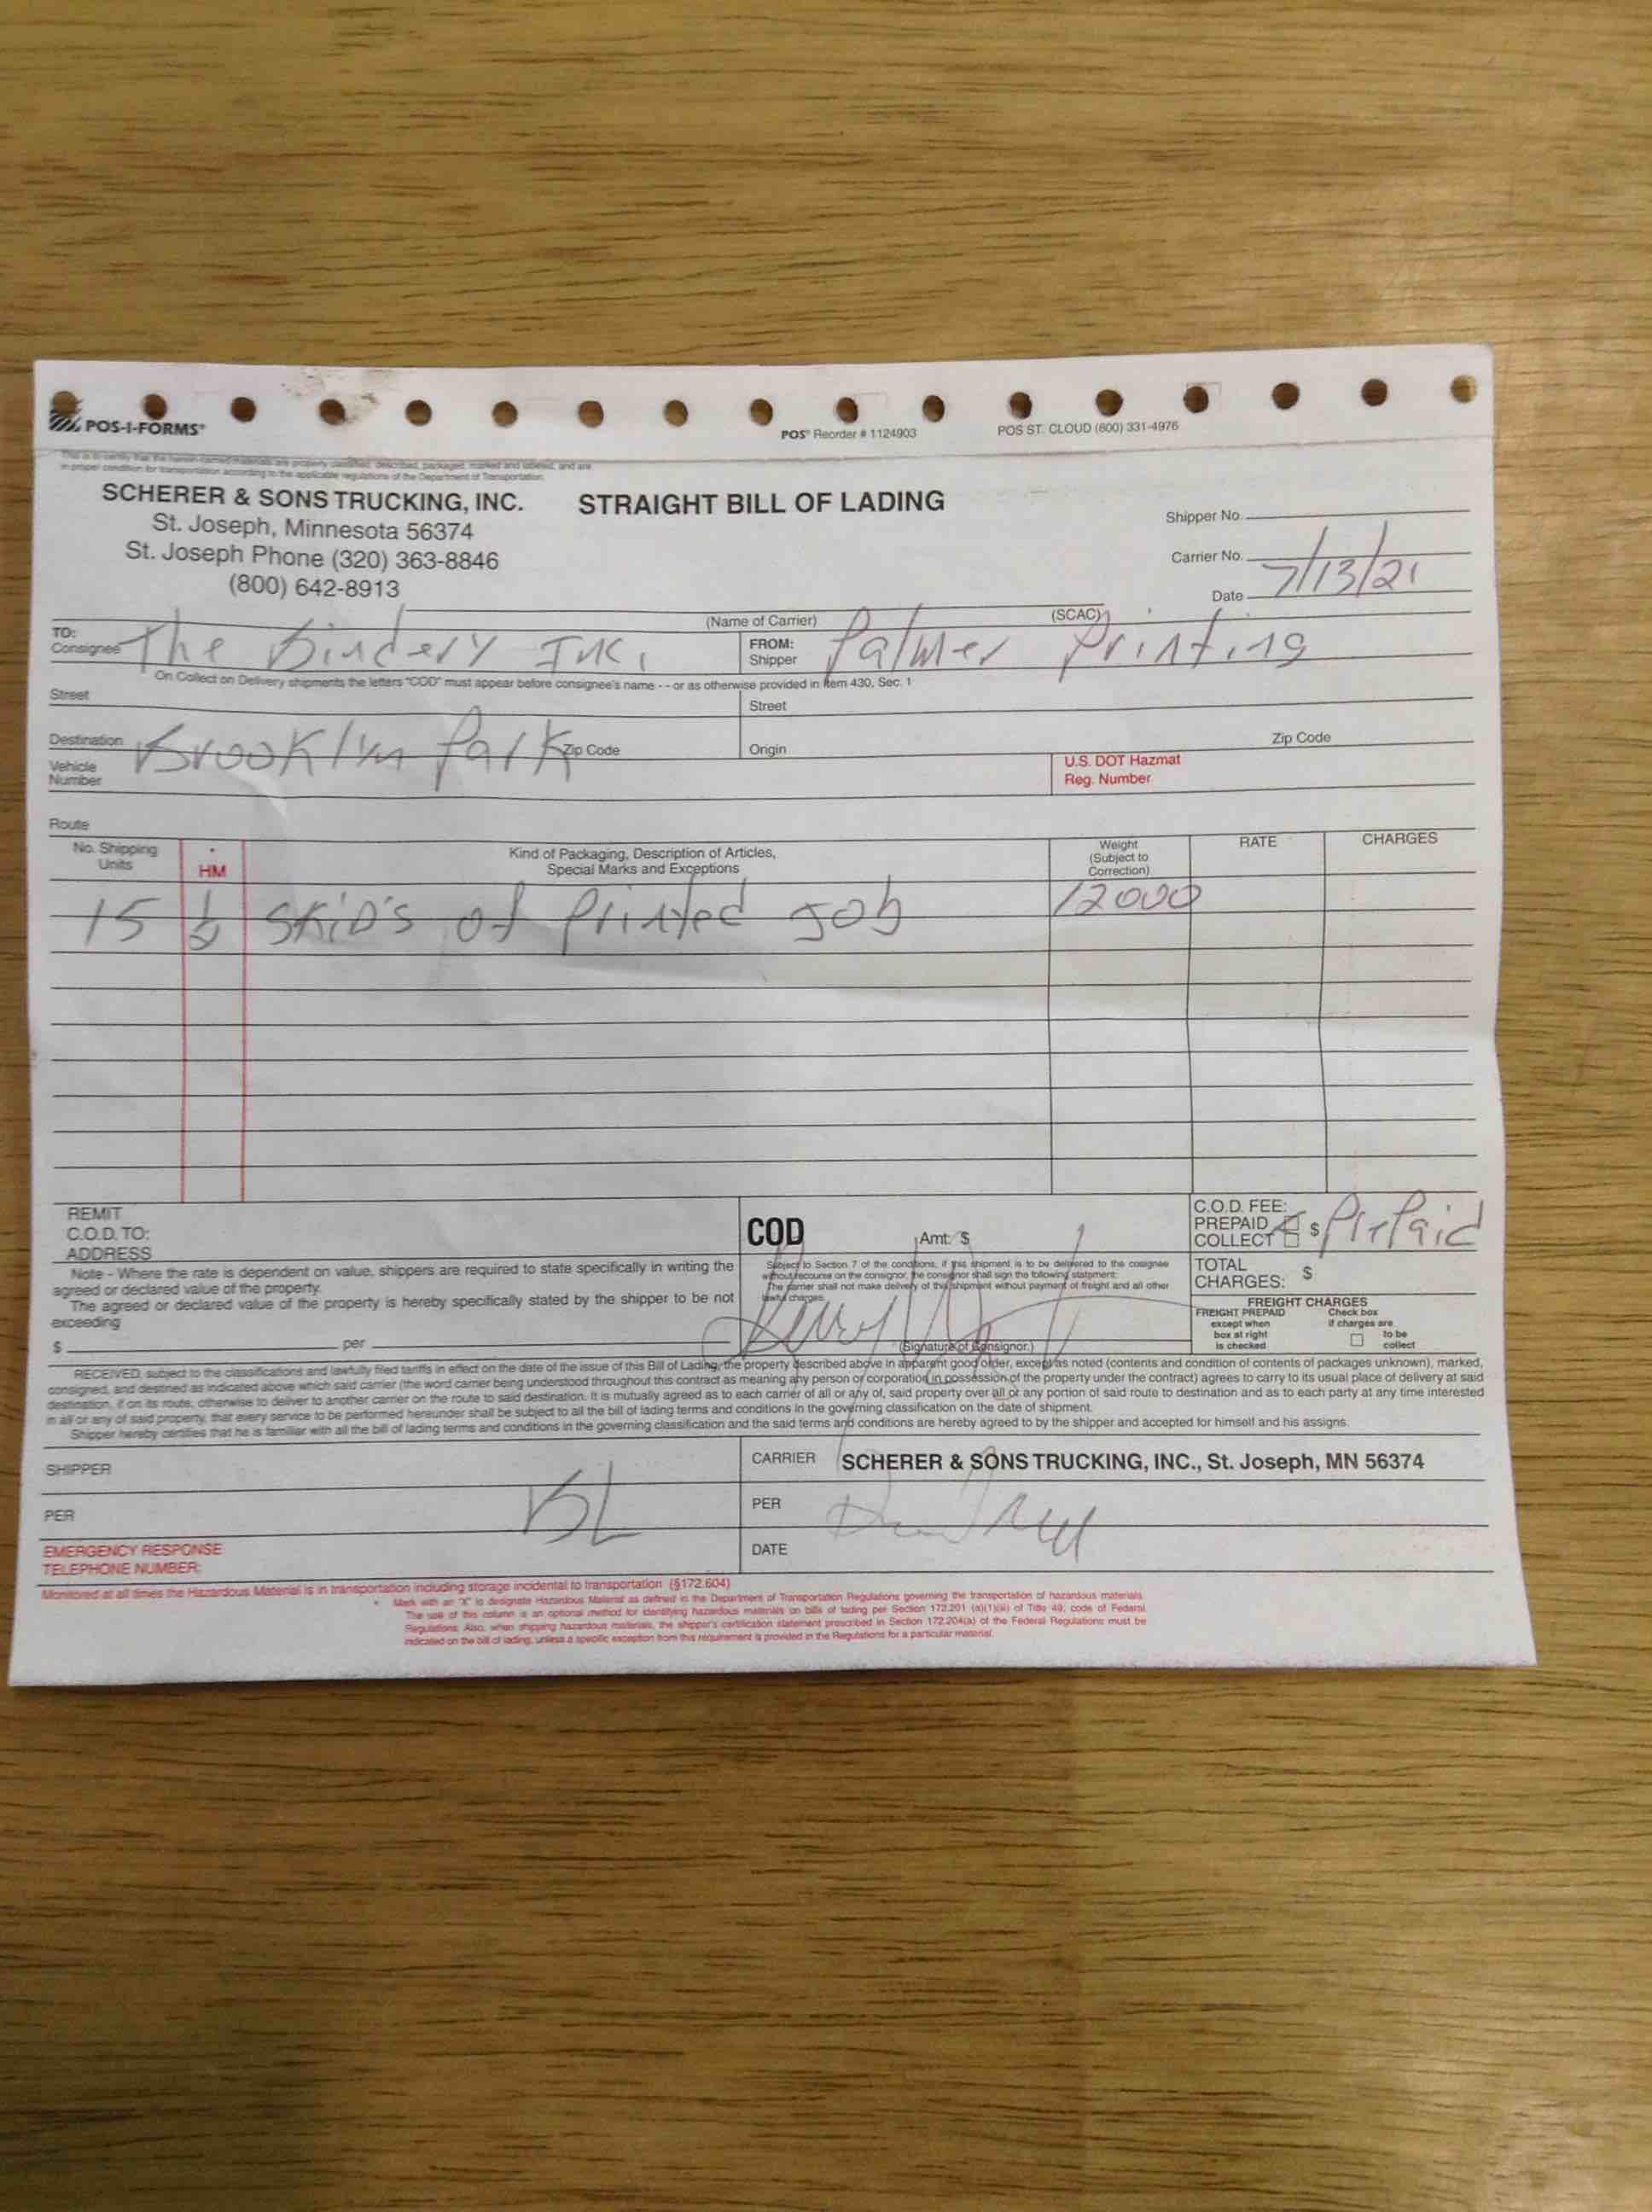 POS-I-FORMS®
POS® Reorder # 1124903
POS ST. CLOUD (800) 331-4976
This is to certify that the herein-named materials are properly classified, described, packaged, marked and labeled, and are
in proper condition for transportation according to the applicable regulations of the Department of Transportation.
SCHERER & SONS TRUCKING, INC.
St. Joseph, Minnesota 56374
St. Joseph Phone (320) 363-8846
(800) 642-8913
STRAIGHT BILL OF LADING
Shipper No.
Carrier No.
Date 7/13/21
(Name of Carrier) (SCAC)
TO: Consignee The Bindery INK,
FROM: Shipper Palmer Printing
On Collect on Delivery shipments the letters "COD" must appear before consignee's name - - or as otherwise provided in Item 430, Sec. 1
Street
Street
Destination Brooklyn Park Zip Code
Origin Zip Code
Vehicle Number
U.S. DOT Hazmat
Reg. Number
Route
No. Shipping Units
* HM
Kind of Packaging, Description of Articles,
Special Marks and Exceptions
Weight (Subject to Correction)
RATE
CHARGES
15 1/2 SKID'S of Printed Job 12000
REMIT
C.O.D. TO:
ADDRESS
COD Amt: $
C.O.D. FEE:
PREPAID
COLLECT
$ PrePaid
Note - Where the rate is dependent on value, shippers are required to state specifically in writing the
agreed or declared value of the property.
The agreed or declared value of the property is hereby specifically stated by the shipper to be not
exceeding
$ per
Subject to Section 7 of the conditions, if this shipment is to be delivered to the consignee
without recourse on the consignor, the consignor shall sign the following statement:
The carrier shall not make delivery of this shipment without payment of freight and all other
lawful charges.
(Signature of Consignor.)
TOTAL
CHARGES: $
FREIGHT CHARGES
FREIGHT PREPAID
except when
box at right
is checked
Check box
if charges are
to be
collect
RECEIVED, subject to the classifications and lawfully filed tariffs in effect on the date of the issue of this Bill of Lading, the property described above in apparent good order, except as noted (contents and condition of contents of packages unknown), marked,
consigned, and destined as indicated above which said carrier (the word carrier being understood throughout this contract as meaning any person or corporation in possession of the property under the contract) agrees to carry to its usual place of delivery at said
destination, if on its route, otherwise to deliver to another carrier on the route to said destination. It is mutually agreed as to each carrier of all or any of, said property over all or any portion of said route to destination and as to each party at any time interested
in all or any of said property, that every service to be performed hereunder shall be subject to all the bill of lading terms and conditions in the governing classification on the date of shipment.
Shipper hereby certifies that he is familiar with all the bill of lading terms and conditions in the governing classification and the said terms and conditions are hereby agreed to by the shipper and accepted for himself and his assigns.
SHIPPER
CARRIER SCHERER & SONS TRUCKING, INC., St. Joseph, MN 56374
PER BL
PER
DATE
EMERGENCY RESPONSE
TELEPHONE NUMBER:
Monitored at all times the Hazardous Material is in transportation including storage incidental to transportation (§172.604)
* Mark with an "X" to designate Hazardous Material as defined in the Department of Transportation Regulations governing the transportation of hazardous materials.
The use of this column is an optional method for identifying hazardous materials on bills of lading per Section 172.201 (a)(1)(iii) of Title 49, code of Federal
Regulations. Also, when shipping hazardous materials, the shipper's certification statement prescribed in Section 172.204(a) of the Federal Regulations must be
indicated on the bill of lading, unless a specific exception from this requirement is provided in the Regulations for a particular material.